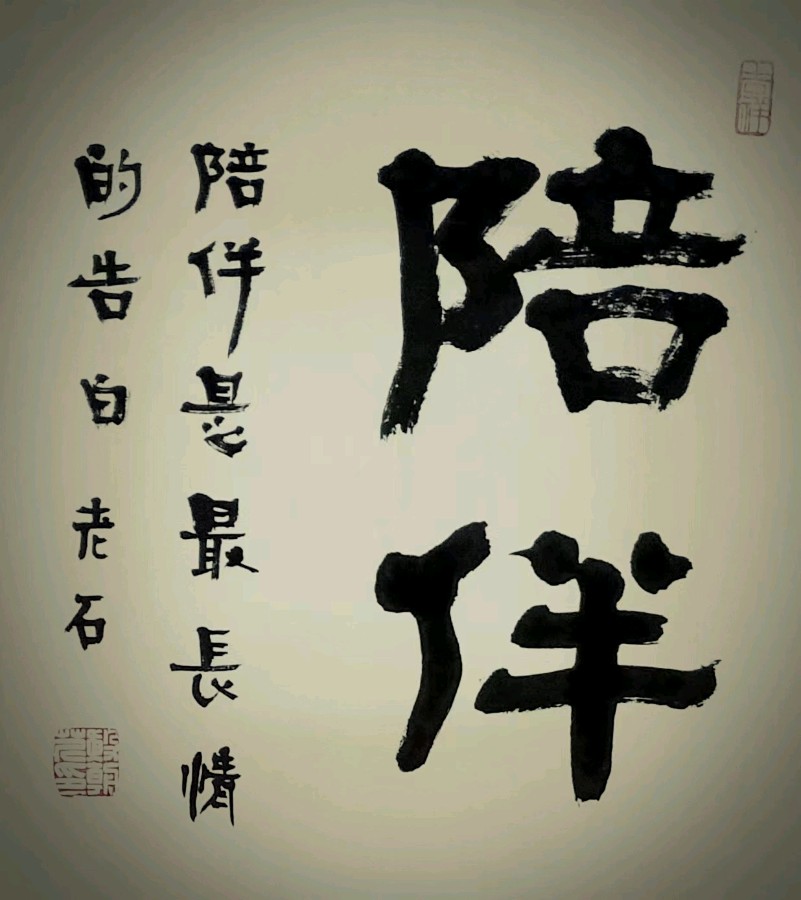 陪伴
陪伴是最長情
的告白 老石